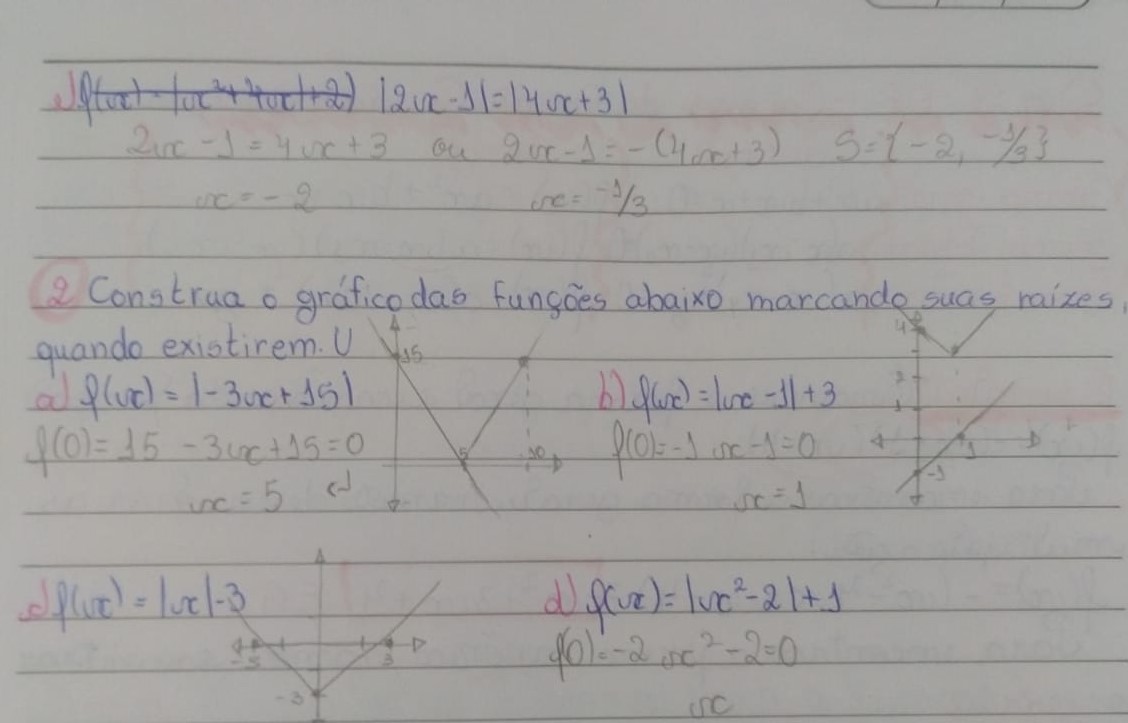 e) f(x) = |x²+4x|+2) |2x-1|=|4x+3|
2x-1=4x+3 ou 2x-1=-(4x+3) S={-2, -1/3}
x=-2 x=-1/3
2 Construa o gráfico das funções abaixo marcando suas raízes,
quando existirem. U
a) f(x)=|-3x+15|
f(0)=15 -3x+15=0
x=5
15
5
10
b) f(x)=|x-1|+3
f(0)=-1 x-1=0
x=1
4
1
1
-1
c) f(x)=|x|-3
-3
3
-3
d) f(x)=|x²-2|+1
f(0)=-2 x²-2=0
x